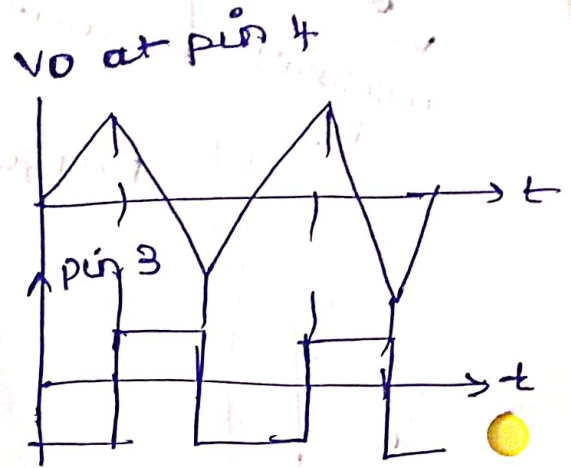 VO at pin 4
t
pin 3
t